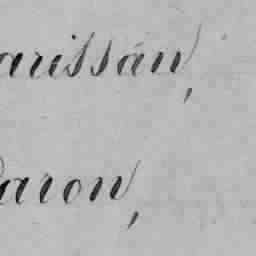 arissán,
aron,